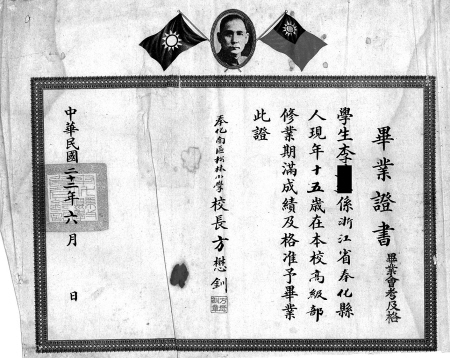 畢業證書
畢業會考及格
學生李 係浙江省奉化縣
人現年十五歲在本校高級部
修業期滿成績及格准予畢業
此證
奉化南區松林小學校長方懋釗
中華民國二十二年六月 日